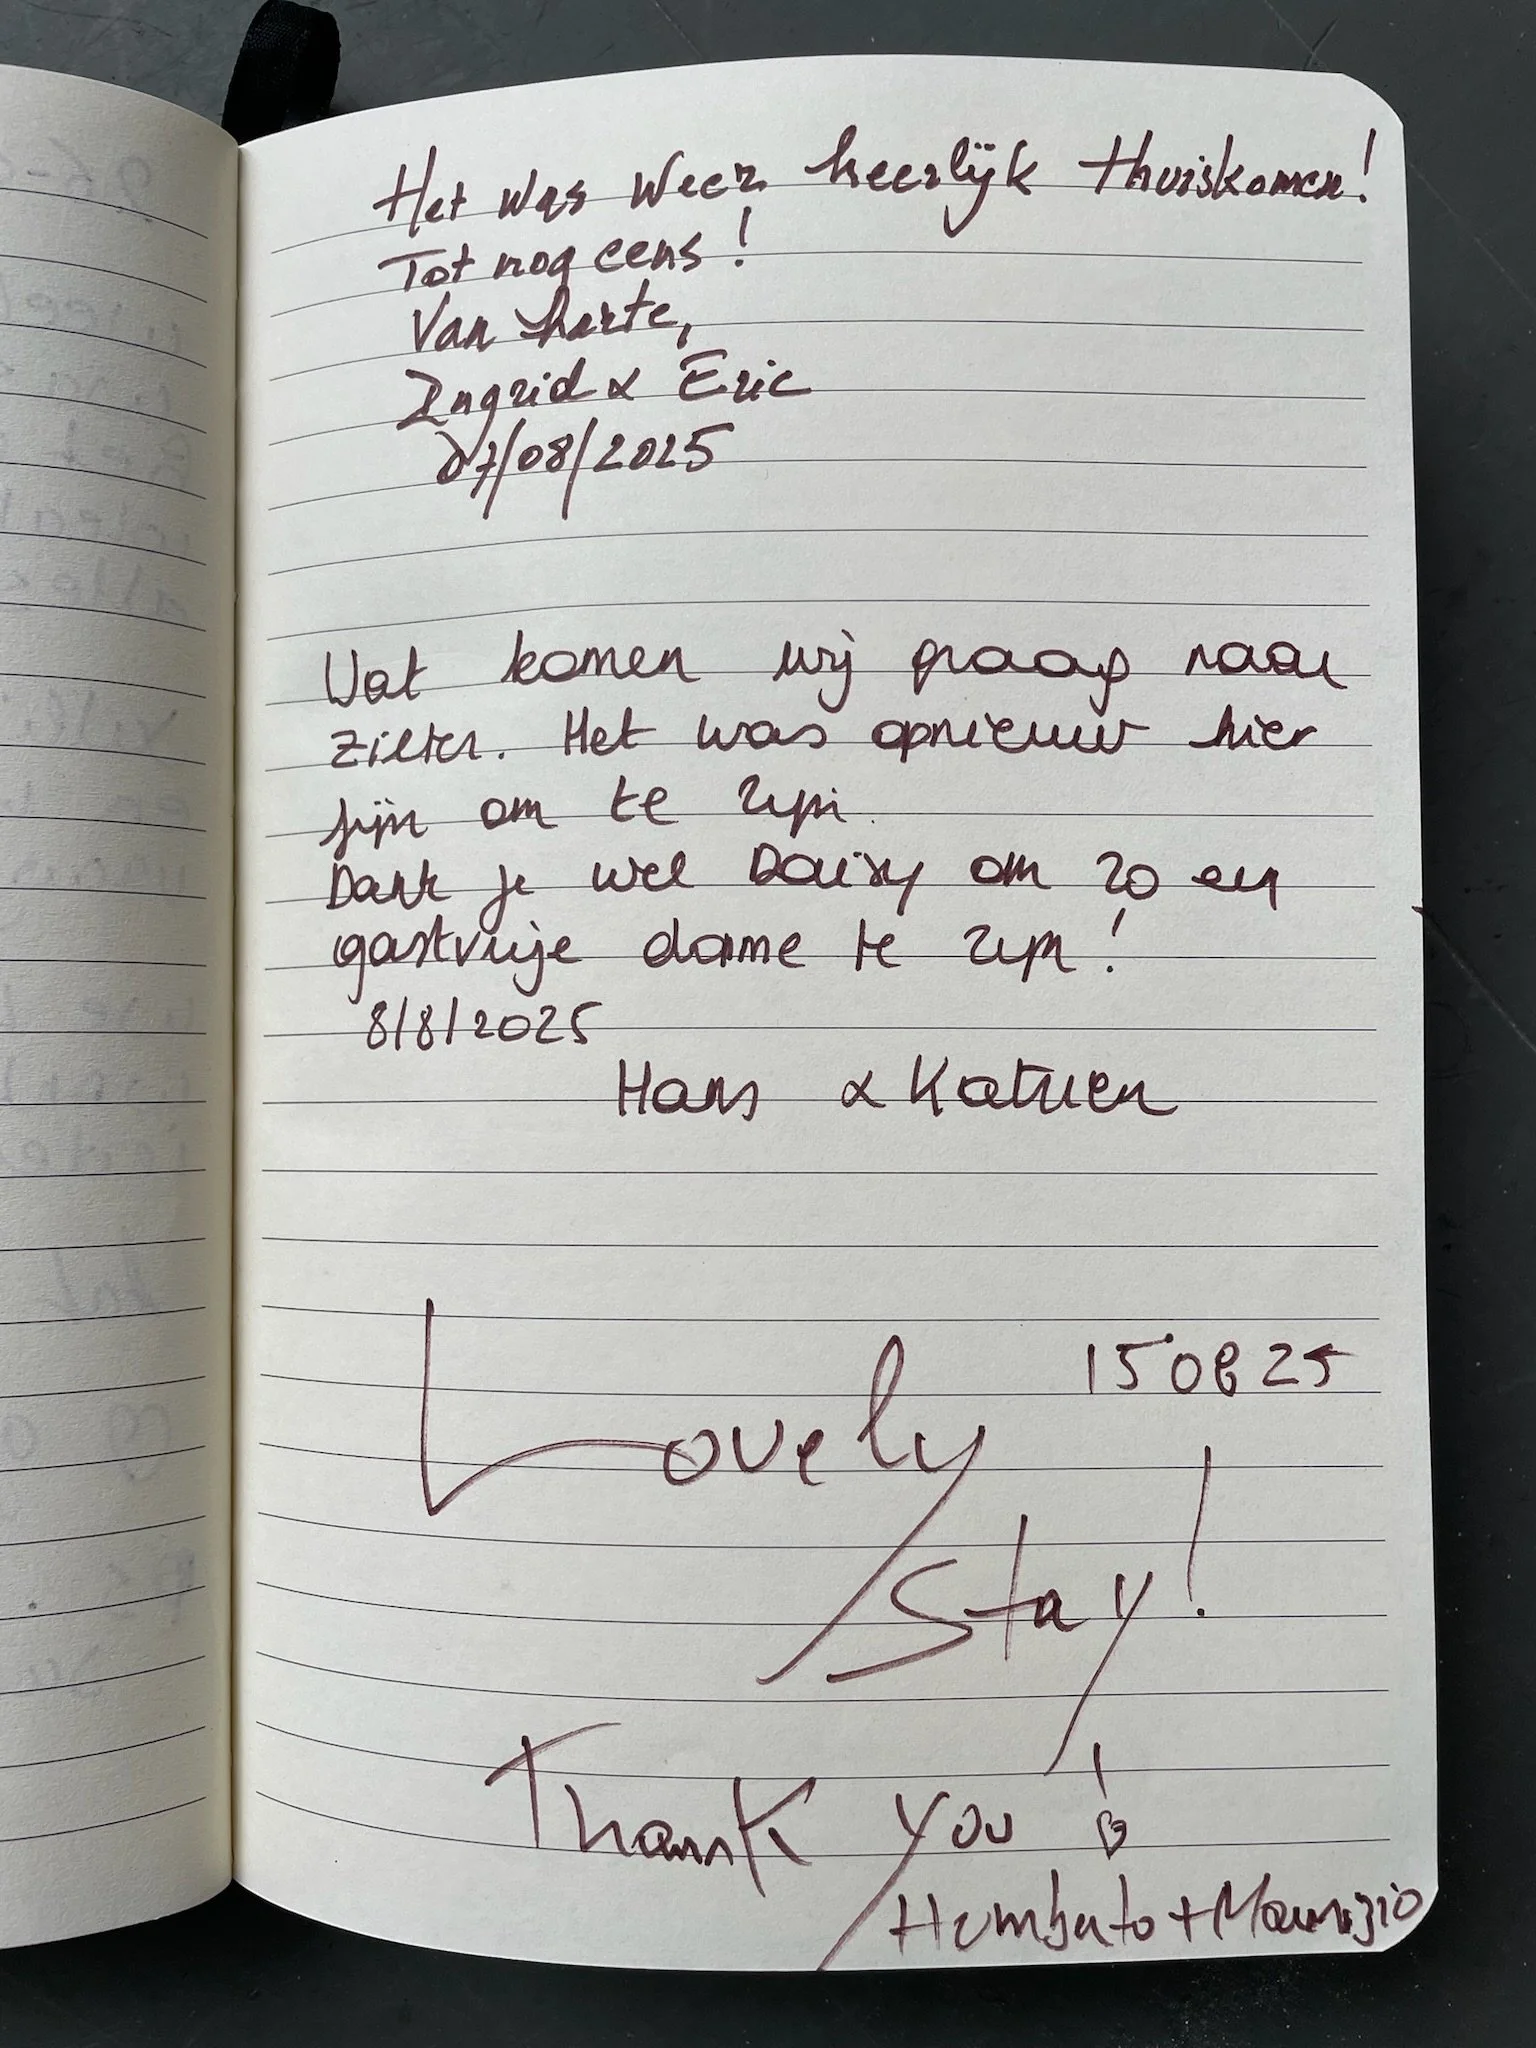 Het was weer heerlijk thuiskomen!
Tot nog eens!
Van harte,
Ingrid & Eric
07/08/2025
Wat komen wij graag naar
Zilten. Het was opnieuw hier
fijn om te zijn.
Dank je wel Daisy om zo een
gastvrije dame te zijn!
8/8/2025
Hans & Katrien
15 08 25
Lovely
Stay!
Thank you!
Humberto + Maurizio